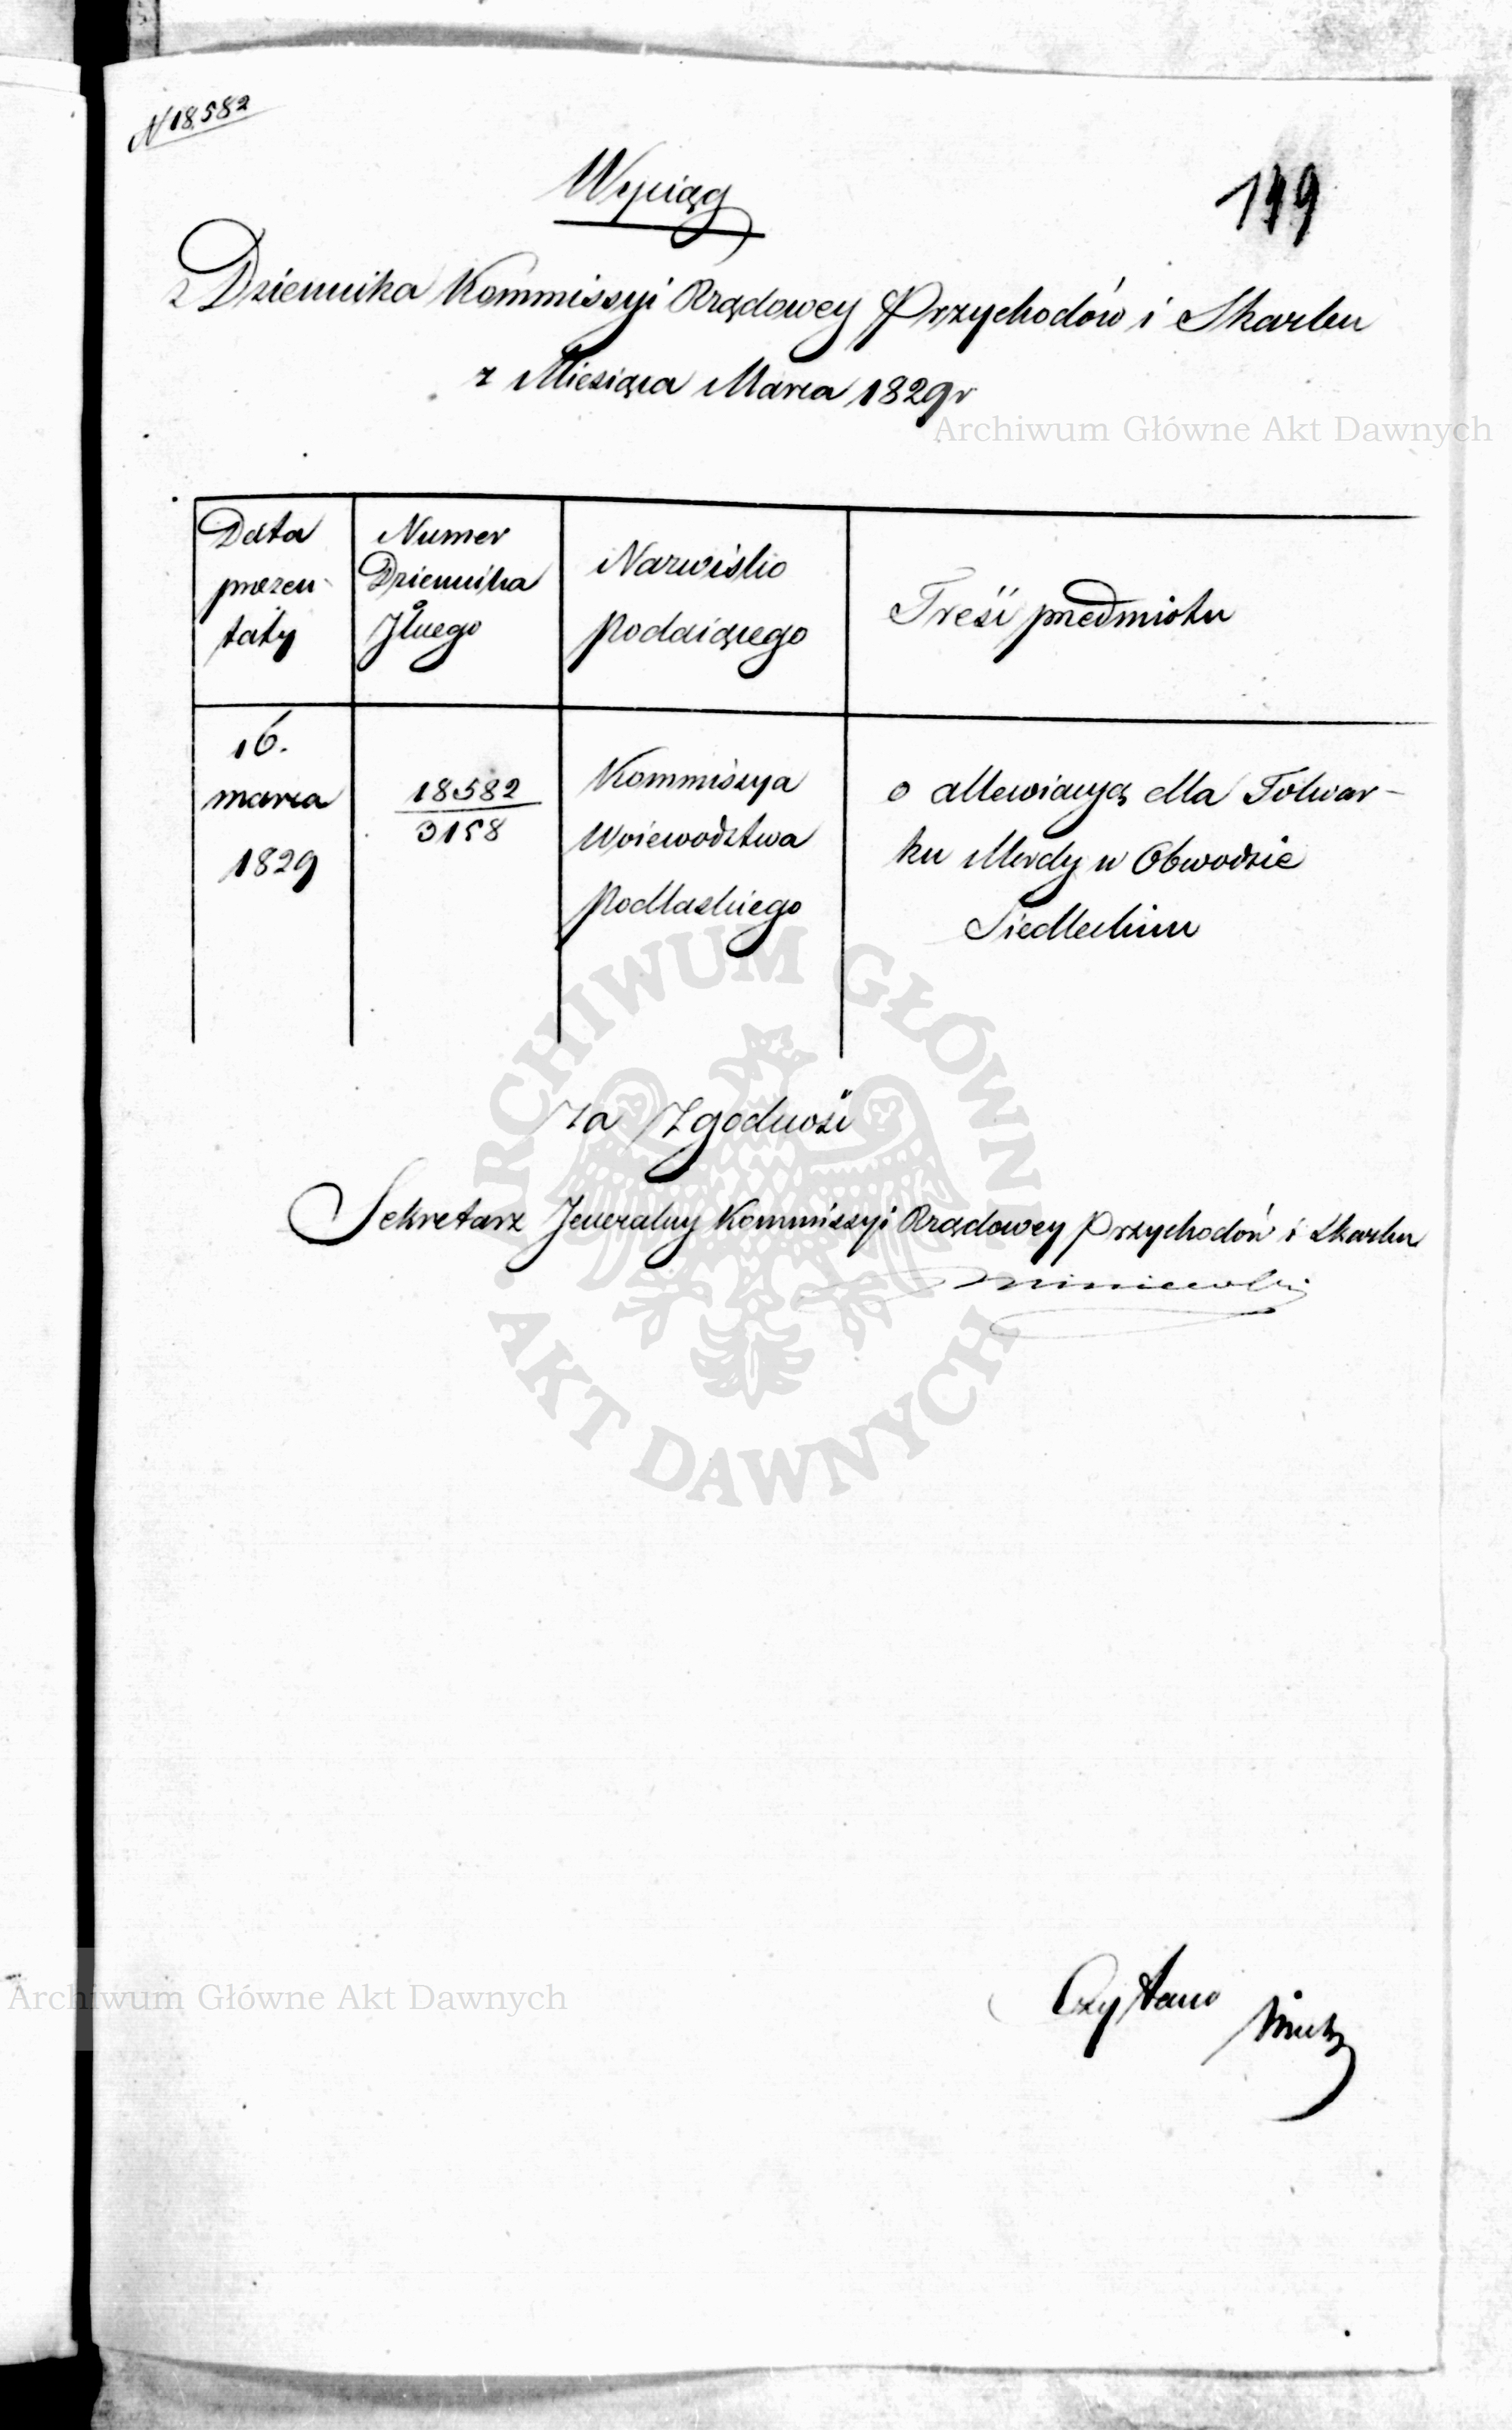 N 18,582
149
Wyciąg
z Dziennika Kommissyi Rządowey Przychodów i Skarbu
z Miesiąca Marca 1829 r
Archiwum Główne Akt Dawnych
Data
prezen-
taty
Numer
Dziennika
Nazwisko
Podaiącego
Treść przedmiotu
16.
marca
1829
18582
3158
Kommissya
Woiewodztwa
Podlaskiego
o allewiacyą dla Folwar-
ku Mordy w Obwodzie
Siedleckim
Za Zgodność
Sekretarz Jeneralny Kommissyi Rządowey Przychodów i Skarbu
ARCHIWUM GŁÓWNE AKT DAWNYCH
Archiwum Główne Akt Dawnych
Czytano